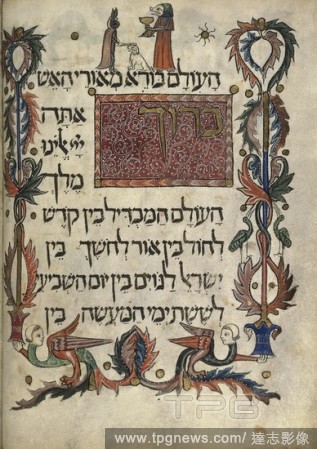 העולם בורא מאורי האש
ברוך
אתה
יי אלהינו
מלך
העולם המבדיל בין קדש
לחול בין אור לחשך בין
ישראל לגוים בין יום השביעי
לששת ימי המעשה בין
TPG
www.tpgnews.com/ 達志影像